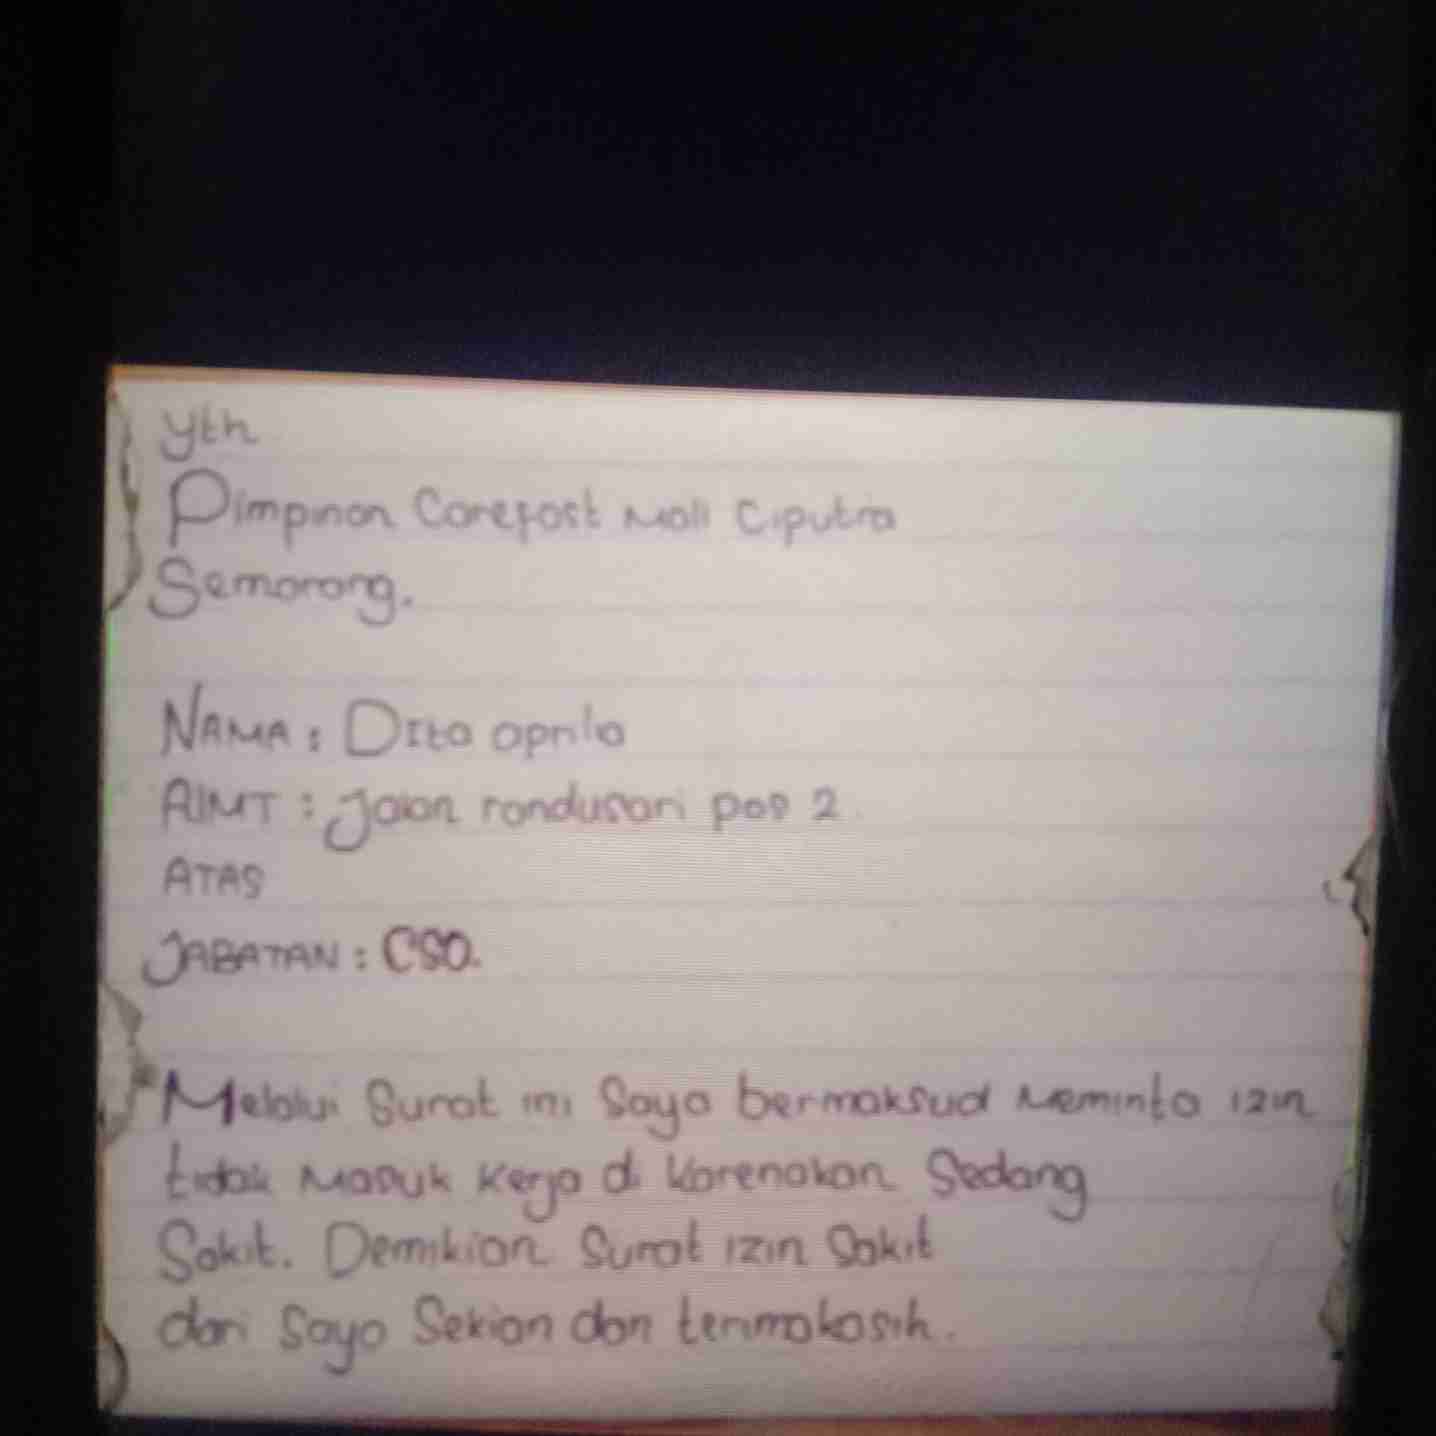 Yth
Pimpinan Carefast Mall Ciputra
Semarang.
NAMA : Dita aprila
AlMT : Jalan randusari pos 2
ATAS
JABATAN : CSO.
Melalui Surat ini Saya bermaksud Meminta izin
tidak Masuk Kerja di Karenakan Sedang
Sakit. Demikian Surat izin Sakit
dari Saya Sekian dan terimakasih.